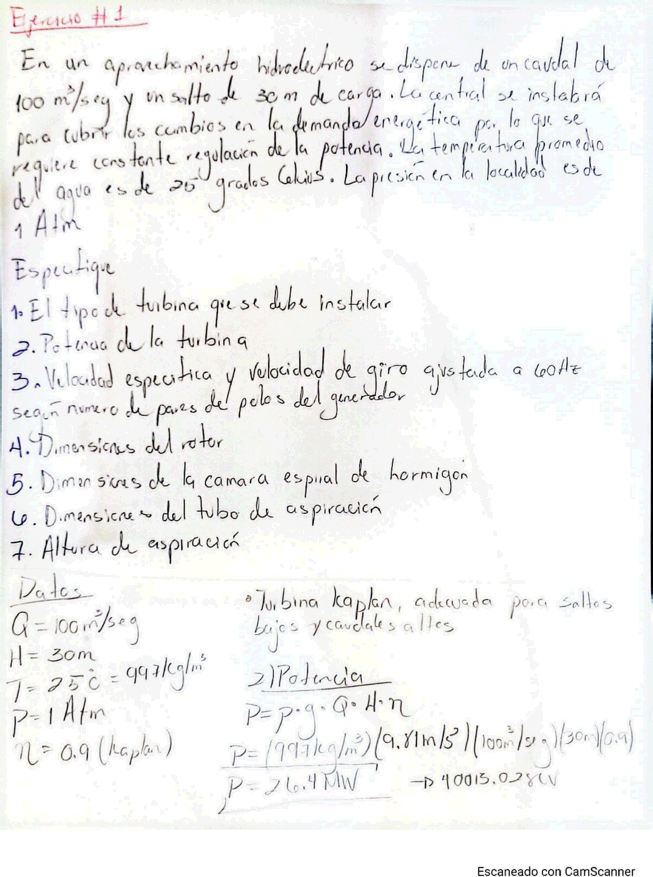 Ejercicio #1
En un aprovechamiento hidroelectrico se dispone de un caudal de
100 m³/seg y un salto de 30 m de carga. La central se instalará
para cubrir los cambios en la demanda energética por lo que se
requiere constante regulación de la potencia. La temperatura promedio
del agua es de 25 grados Celcius. La presión en la localidad es de
1 Atm
Especifique
1. El tipo de turbina que se debe instalar
2. Potencia de la turbina
3. Velocidad especifica y velocidad de giro ajustada a 60Hz
según numero de pares de polos del generador
4. Dimensiones del rotor
5. Dimensiones de la camara espiral de hormigón
6. Dimensiones del tubo de aspiración
7. Altura de aspiración
Datos
Q = 100 m³/seg
H = 30m
T = 25°C = 997 kg/m³
P = 1 Atm
η = 0.9 (kaplan)
• Turbina kaplan, adecuada para saltos
bajos y caudales altos
2) Potencia
P = ρ·g·Q·H·η
P = (997 kg/m³)(9.81 m/s²)(100 m³/seg)(30m)(0.9)
P = 26.4 MW → 40013.028CV
Escaneado con CamScanner